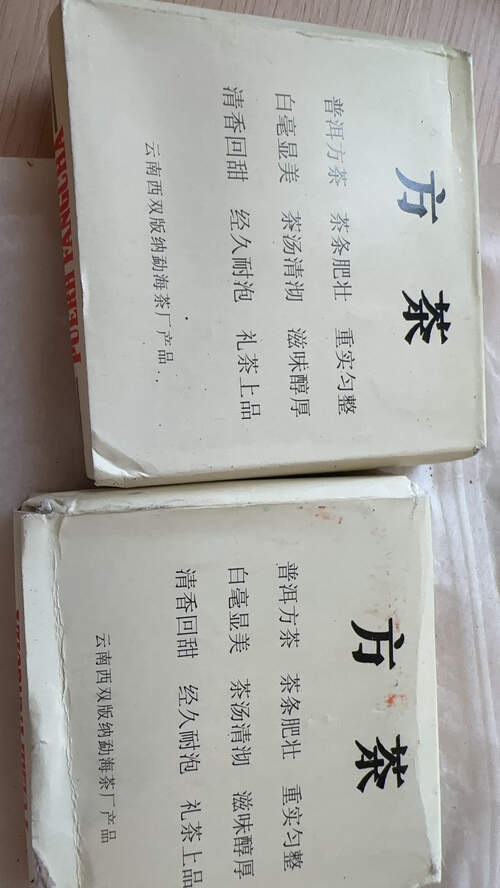 方茶
普洱方茶 茶条肥壮 重实匀整
白毫显美 茶汤清沏 滋味醇厚
清香回甜 经久耐泡 礼茶上品
云南西双版纳勐海茶厂产品
PUERH FANGCHA
方茶
普洱方茶 茶条肥壮 重实匀整
白毫显美 茶汤清沏 滋味醇厚
清香回甜 经久耐泡 礼茶上品
云南西双版纳勐海茶厂产品